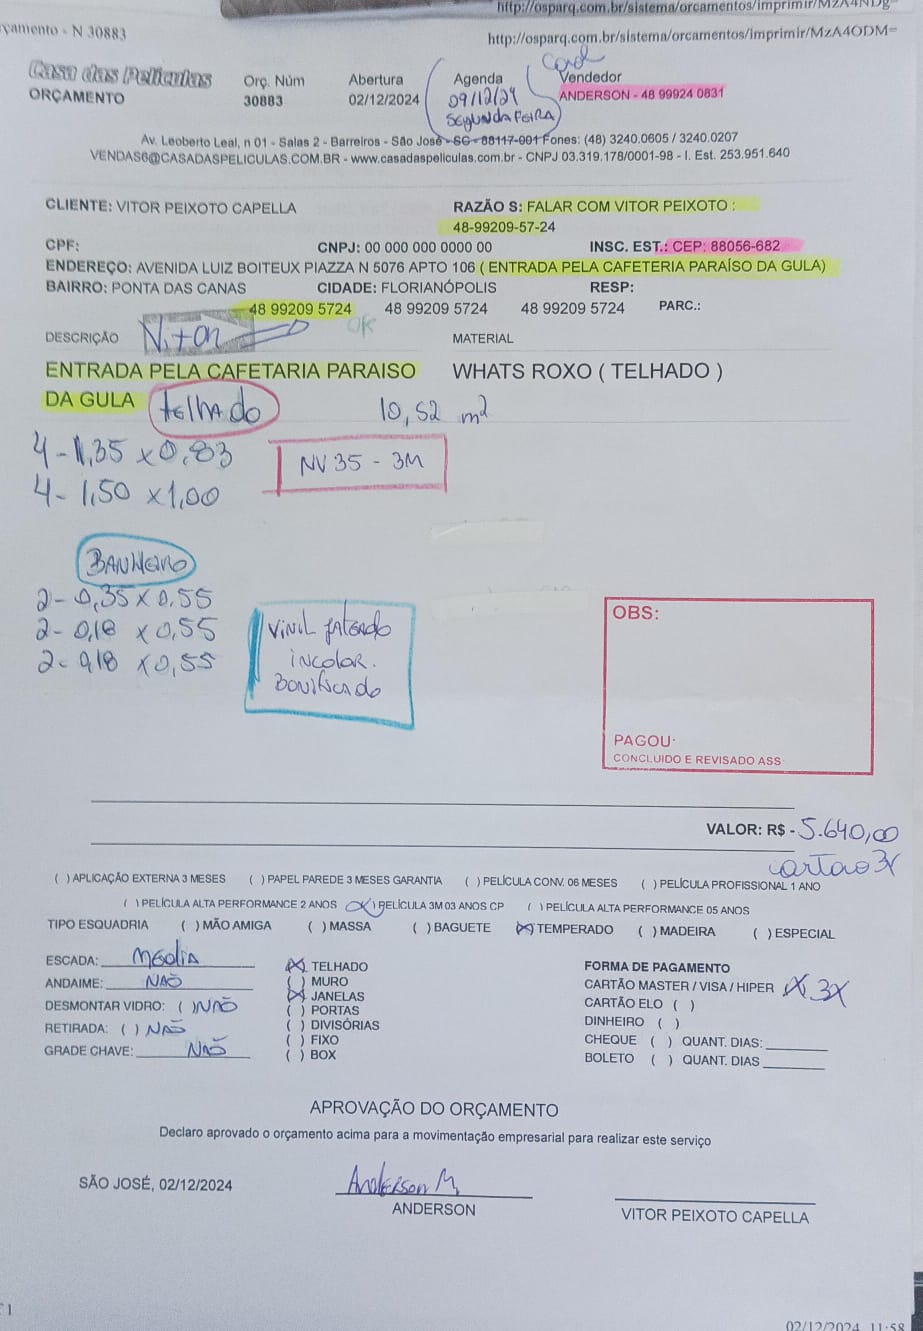 http://osparq.com.br/sistema/orcamentos/imprimir/MzA4NDg=
rçamento - N 30883
http://osparq.com.br/sistema/orcamentos/imprimir/MzA4ODM=
Casa das Películas
ORÇAMENTO
Orç. Núm
30883
Abertura
02/12/2024
Agenda
09/12/24
SEGUNDA FEIRA
Vendedor
ANDERSON - 48 99924 0831
Av. Leoberto Leal, n 01 - Salas 2 - Barreiros - São José - SC - 88117-001 Fones: (48) 3240.0605 / 3240.0207
VENDAS6@CASADASPELICULAS.COM.BR - www.casadaspeliculas.com.br - CNPJ 03.319.178/0001-98 - I. Est. 253.951.640
CLIENTE: VITOR PEIXOTO CAPELLA
RAZÃO S: FALAR COM VITOR PEIXOTO :
48-99209-57-24
CPF:
CNPJ: 00 000 000 0000 00
INSC. EST.: CEP: 88056-682
ENDEREÇO: AVENIDA LUIZ BOITEUX PIAZZA N 5076 APTO 106 ( ENTRADA PELA CAFETERIA PARAÍSO DA GULA)
BAIRRO: PONTA DAS CANAS CIDADE: FLORIANÓPOLIS RESP:
48 99209 5724 48 99209 5724 48 99209 5724 PARC.:
DESCRIÇÃO Vitor OK MATERIAL
ENTRADA PELA CAFETARIA PARAISO
DA GULA
WHATS ROXO ( TELHADO )
TELHADO 10,52 m²
4 - 1,35 x 0,83
4 - 1,50 x 1,00
NV 35 - 3M
BANHEIRO
2 - 0,35 x 0,55
2 - 0,18 x 0,55
2 - 0,18 x 0,55
VINIL JATEADO
INCOLOR.
BONIFICADO
OBS:
PAGOU:
CONCLUIDO E REVISADO ASS
VALOR: R$ - 5.640,00
cartao 3x
( ) APLICAÇÃO EXTERNA 3 MESES ( ) PAPEL PAREDE 3 MESES GARANTIA ( ) PELÍCULA CONV. 06 MESES ( ) PELÍCULA PROFISSIONAL 1 ANO
( ) PELÍCULA ALTA PERFORMANCE 2 ANOS (X) PELÍCULA 3M 03 ANOS CP ( ) PELÍCULA ALTA PERFORMANCE 05 ANOS
TIPO ESQUADRIA ( ) MÃO AMIGA ( ) MASSA ( ) BAGUETE (X) TEMPERADO ( ) MADEIRA ( ) ESPECIAL
ESCADA: MEDIA
ANDAIME: NÃO
DESMONTAR VIDRO: ( ) NÃO
RETIRADA: ( ) NÃO
GRADE CHAVE: NÃO
(X) TELHADO
( ) MURO
(X) JANELAS
( ) PORTAS
( ) DIVISÓRIAS
( ) FIXO
( ) BOX
FORMA DE PAGAMENTO
CARTÃO MASTER / VISA / HIPER (X) 3X
CARTÃO ELO ( )
DINHEIRO ( )
CHEQUE ( ) QUANT. DIAS:
BOLETO ( ) QUANT. DIAS
APROVAÇÃO DO ORÇAMENTO
Declaro aprovado o orçamento acima para a movimentação empresarial para realizar este serviço
SÃO JOSÉ, 02/12/2024
Anderson M.
ANDERSON
VITOR PEIXOTO CAPELLA
02/12/2024 11:58